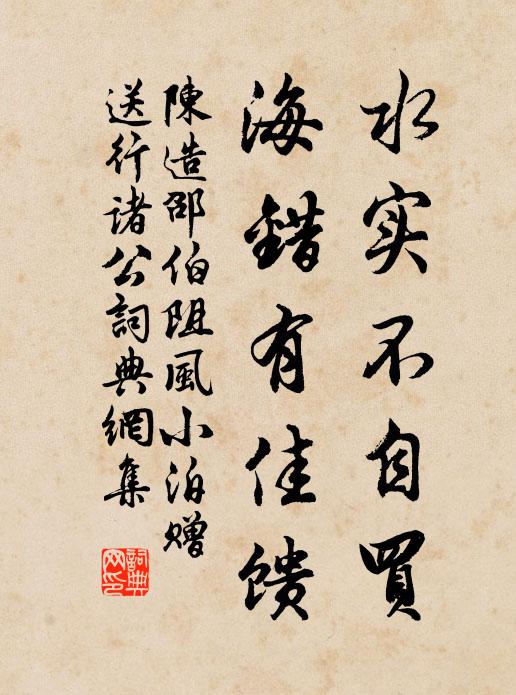 水实不自買
海錯有佳馈
陳造邵伯阻風小泊赠
送行诸公詞典網集
詞典網印